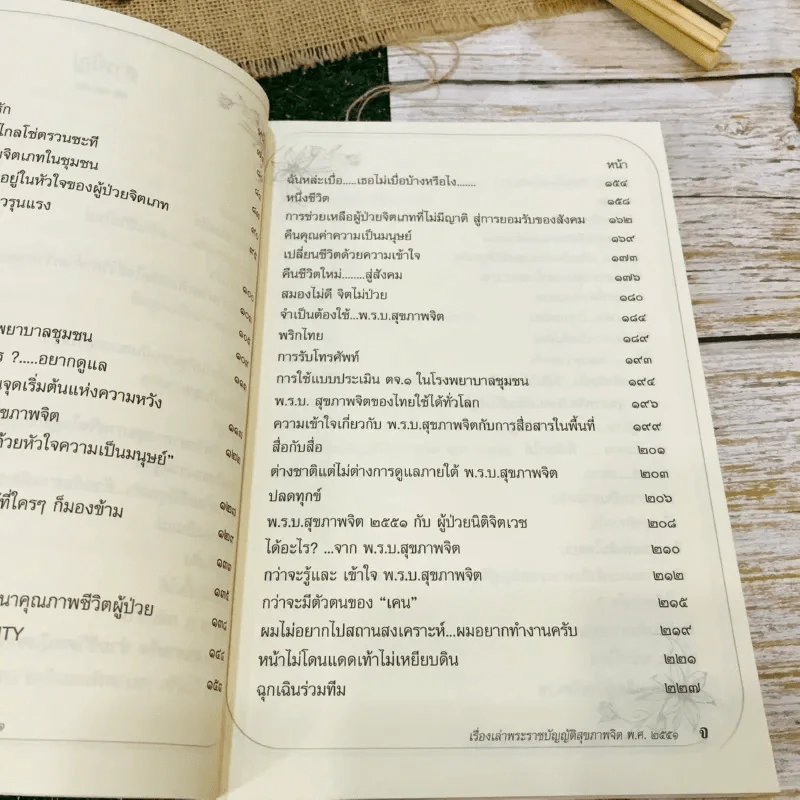 รัก
ไกลโซ่ตรวนซะที
จิตเภทในชุมชน
อยู่ในหัวใจของผู้ป่วยจิตเภท
รุนแรง
๙๐
๙๕
๑๐๐
๑๐๒
พยาบาลชุมชน ๑๐๕
ร ?.....อยากดูแล ๑๐๙
จุดเริ่มต้นแห่งความหวัง
สุขภาพจิต ๑๑๗
ด้วยหัวใจความเป็นมนุษย์” ๑๒๒
ที่ใครๆ ก็มองข้าม ๑๒๓
๑๒๙
๑๓๓
๑๓๕
นาคุณภาพชีวิตผู้ป่วย ๑๓๘
ITY ๑๔๔
๑๕๑
หน้า
ฉันหล่ะเบื่อ.....เธอไม่เบื่อบ้างหรือไง....... ๑๕๔
หนึ่งชีวิต ๑๕๘
การช่วยเหลือผู้ป่วยจิตเภทที่ไม่มีญาติ สู่การยอมรับของสังคม ๑๖๒
คืนคุณค่าความเป็นมนุษย์ ๑๖๙
เปลี่ยนชีวิตด้วยความเข้าใจ ๑๗๓
คืนชีวิตใหม่........สู่สังคม ๑๗๖
สมองไม่ดี จิตไม่ป่วย ๑๘๐
จำเป็นต้องใช้...พ.ร.บ.สุขภาพจิต ๑๘๔
พริกไทย ๑๘๙
การรับโทรศัพท์ ๑๙๓
การใช้แบบประเมิน ตจ.๑ ในโรงพยาบาลชุมชน ๑๙๔
พ.ร.บ. สุขภาพจิตของไทยใช้ได้ทั่วโลก ๑๙๖
ความเข้าใจเกี่ยวกับ พ.ร.บ.สุขภาพจิตกับการสื่อสารในพื้นที่ ๑๙๙
สื่อกับสื่อ ๒๐๑
ต่างชาติแต่ไม่ต่างการดูแลภายใต้ พ.ร.บ.สุขภาพจิต ๒๐๓
ปลดทุกข์ ๒๐๖
พ.ร.บ.สุขภาพจิต ๒๕๕๑ กับ ผู้ป่วยนิติจิตเวช ๒๐๘
ได้อะไร? ...จาก พ.ร.บ.สุขภาพจิต ๒๑๐
กว่าจะรู้และ เข้าใจ พ.ร.บ.สุขภาพจิต ๒๑๒
กว่าจะมีตัวตนของ “เคน” ๒๑๕
ผมไม่อยากไปสถานสงเคราะห์...ผมอยากทำงานครับ ๒๑๙
หน้าไม่โดนแดดเท้าไม่เหยียบดิน ๒๒๑
ฉุกเฉินร่วมทีม ๒๒๗
เรื่องเล่าพระราชบัญญัติสุขภาพจิต พ.ศ. ๒๕๕๑ จ